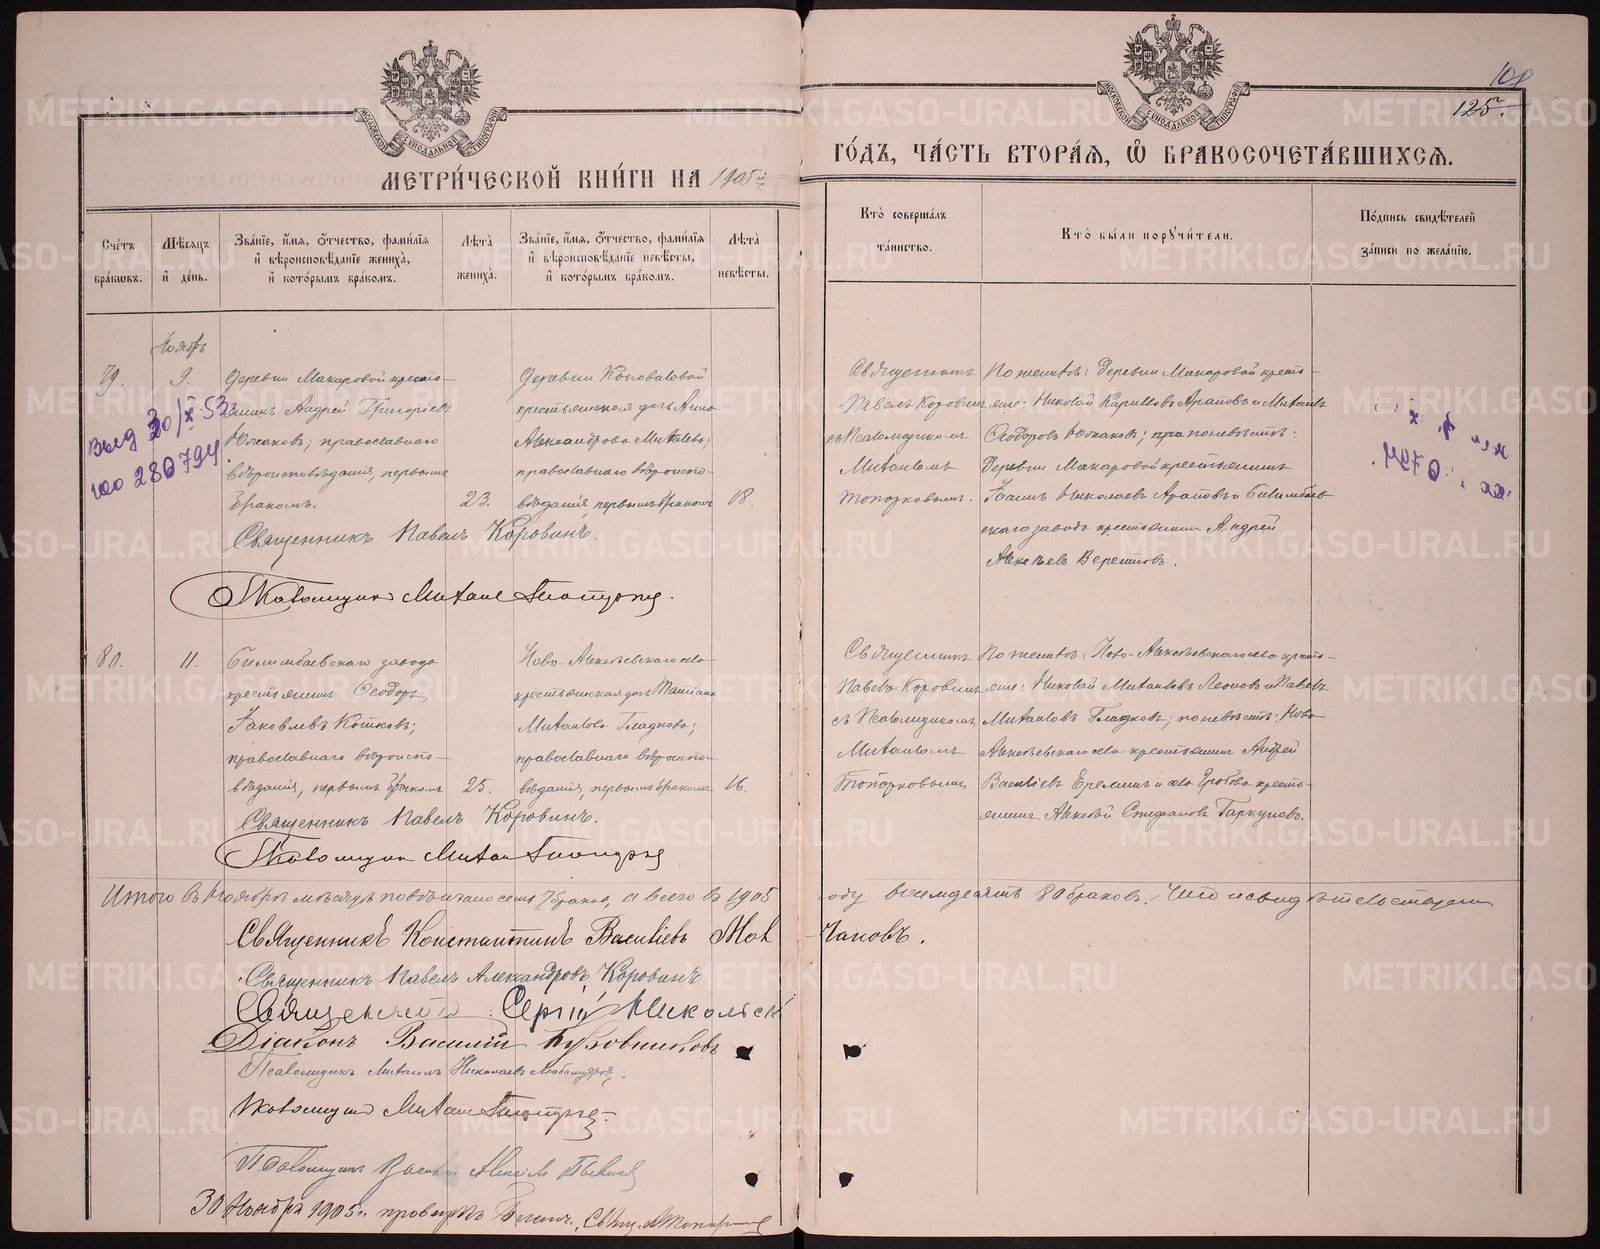 МЕТРИЧЕСКОЙ КНИГИ НА 1905й
ГОДЪ, ЧАСТЬ ВТОРАЯ, Ѡ БРАКОСОЧЕТАВШИХСЯ.
109
125.
Счетъ браковъ.
Мѣсяцъ и день.
Званіе, имя, отчество, фамилія и вѣроисповѣданіе жениха, и которымъ бракомъ.
Лѣта жениха.
Званіе, имя, отчество, фамилія и вѣроисповѣданіе невѣсты, и которымъ бракомъ.
Лѣта невѣсты.
Кто совершалъ таинство.
Кто были поручители.
Подпись свидѣтелей записи по желанію.
Ноябрь
79.
9.
Деревни Макаровой кресть-
янинъ Андрей Григоріевъ
православнаго
вѣроисповѣданія, первымъ
бракомъ.
23.
Деревни Коноваловой
крестьянская дочь Анна
Александрова
православнаго вѣроиспо-
вѣданія, первымъ бракомъ
18.
Священникъ
Павелъ Коровинъ
съ Псаломщикомъ
Михаиломъ
Топорковымъ.
По женихѣ: Деревни Макаровой кресть-
яне: Николай Кирилловъ Араповъ и Михаилъ
Ѳеодоровъ по невѣстѣ:
Деревни Макаровой крестьянинъ
Іоаннъ Николаевъ Араповъ и Билимбаев-
скаго завода крестьянинъ Андрей
Алексѣевъ
Выд 30/X-53
280794.
Священникъ Павелъ Коровинъ.
Псаломщикъ Михаилъ Топорковъ.
80.
11.
Билимбаевскаго завода
крестьянинъ Ѳеодоръ
Іаковлевъ Кошковъ;
православнаго вѣроиспо-
вѣданія, первымъ бракомъ
25.
Ново-Алексѣевскаго села
крестьянская дочь Татіана
Михаилова Гладкова;
православнаго вѣроиспо-
вѣданія, первымъ бракомъ
16.
Священникъ
Павелъ Коровинъ
съ Псаломщикомъ
Михаиломъ
Топорковымъ
По женихѣ: Ново-Алексѣевскаго села кресть-
яне: Николай Михаиловъ Леоновъ и Павелъ
Михаиловъ Гладковъ; по невѣстѣ: Ново-
Алексѣевскаго села крестьянинъ Андрей
Васильевъ Еремин и села кресть-
янинъ Алексѣй Стефановъ
Священникъ Павелъ Коровинъ.
Псаломщикъ Михаилъ Топорковъ
Итого въ Ноябрѣ мѣсяцѣ повѣнчано семь 7 браковъ, а всего въ 1905
году восемдесятъ 80 браковъ. Что и свидѣтельствуемъ
Священникъ Константинъ Васильевъ
Священникъ Павелъ Александровъ Коровинъ.
Священникъ Сергій Никольскій
Діаконъ Василій
Псаломщикъ Михаилъ Николаевъ
Псаломщикъ Михаилъ Топорковъ
Псаломщикъ
30 Ноября 1905 г.
METRIKI.GASO-URAL.RU